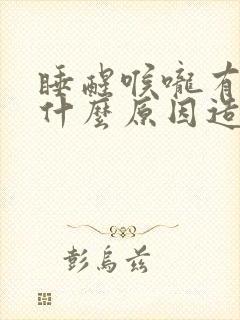 睡醒喉嚨有
什麼原因造
彭烏茲